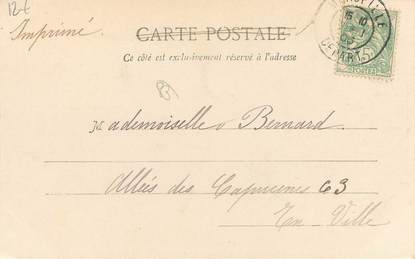 12€
Imprimé
CARTE POSTALE
Ce côté est exclusivement réservé à l'adresse
DEPART
Mademoiselle Bernard
Allées des Capucines 63
En Ville